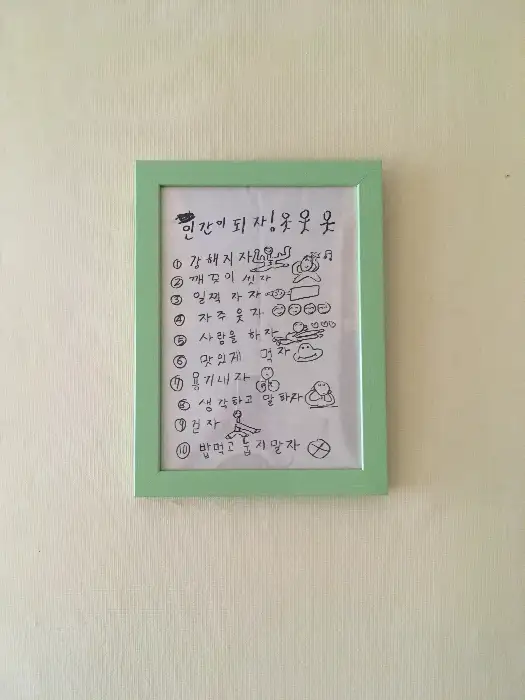 인간이 되자! 웃 웃 웃
① 강해지자
② 깨끗이 씻자
③ 일찍 자자
④ 자주 웃자
⑤ 사람을 하자
⑥ 맛있게 먹자
⑦ 용기내자
⑧ 생각하고 말하자
⑨ 걷자
⑩ 밥먹고 눕지말자